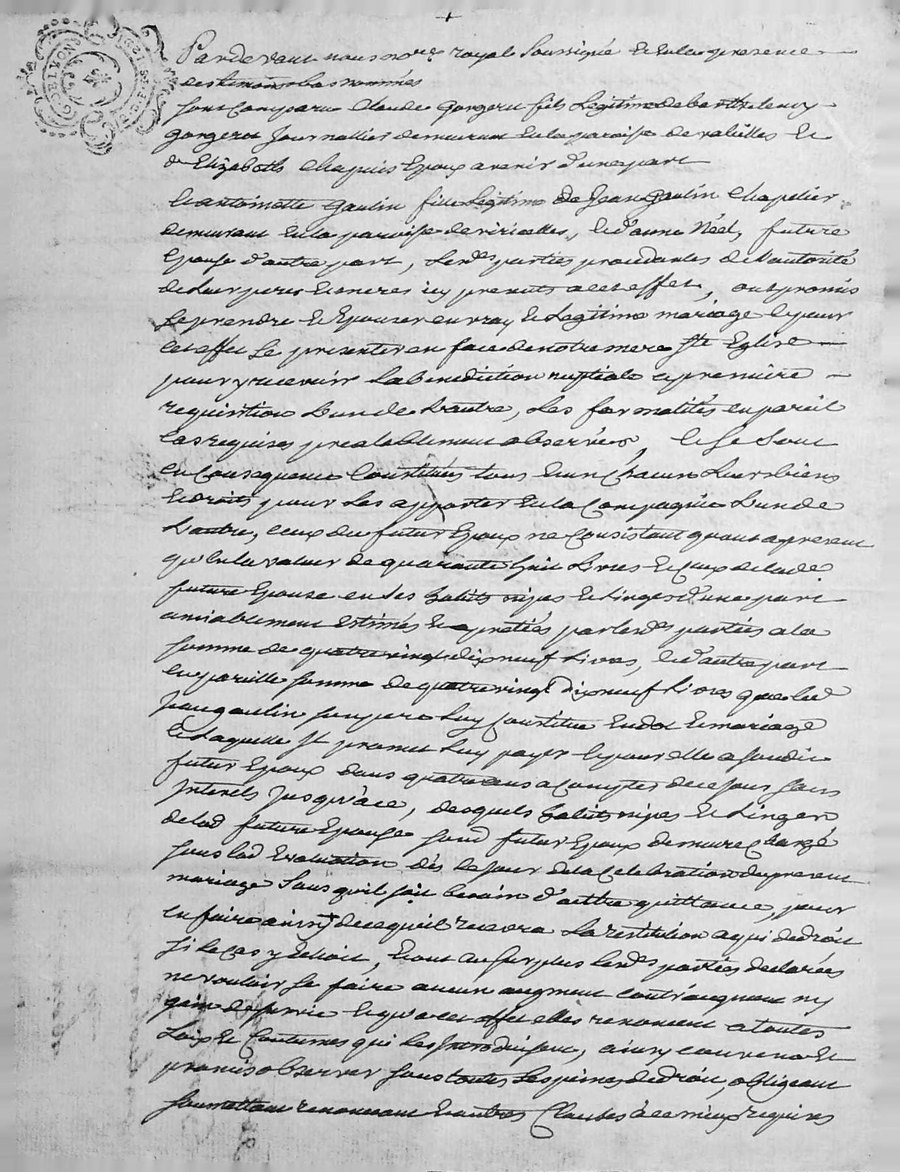 Pardevant nous no.re royal Soussigné et en la presence
des temoins bas nommés
Sont Comparu Claude Gorgeru fils Legitime de barthelemy
Gorgeru Journallier demeurant en la paroisse de valeilles et
d'Elizabeth Chapuis Epoux avenir d'une part
Et antoinette Gaulin fille Legitime de Jean Gaulin Chapelier
demeurant en la paroisse de viricelles, et d'anne Néel, future
Epouse d'autre part, Lesd. parties procedantes de L'autorité
de Leur peres et meres icy presents a cet effet, ont promis
Se prendre et Epouser en vray et Legitime mariage et pour
cet effet Se presenter en face de notre mere Ste Eglise
pour y recevoir La benediction nuptiale a premiere
requisition L'un de L'autre, Les formalités en pareil
Cas requises prealablement observées, et Se Sont
en Consequence Constitués tous et un Chacun Leurs biens
et droits pour Les apporter en la Compagnie L'un de
L'autre, ceux du futur Epoux ne Consistant quant apresent
qu'en la valeur de quarante huit Livres et Ceux de lade
future Epouse en Ses habits nipes et Linges d'une part
amiablement estimés et apretiés par lesd. parties a la
Somme de quatre vingt dix neuf Livres, et d'autre part
en pareille Somme de quatre vingt dix neuf Livres que led
Jean gaulin Son pere Luy Constitue en dot et mariage
et Laquelle Il promet Luy payer et pour elle a Sondit
futur Epoux dans quatre ans a Compter de ce Jour Sans
Interets Jusqu'a ce, desquels habits nipes et Linges
de lad future Epouse Sond futur Epoux demeure Chargé
Sous lad Evaluation dès le Jour de la Celebration du present
mariage Sans qu'il Soit besoin d'autre quittance, pour
en faire ainsy de ce qu'il recevra La restitution a qui de droit
Si le cas y echoit, et ont au Surplus lesd. parties declarées
ne vouloir Se faire aucun augment contr'augment ny
gain de Survie et qu'a cet effet elles renoncent a toutes
Loix et Coutumes qui les Introduisent, ainsy Convenu et
promis observer Sous toutes les peines de droit, obligeant
Soumettant renonceant et autres Clauses à ce mieux requises